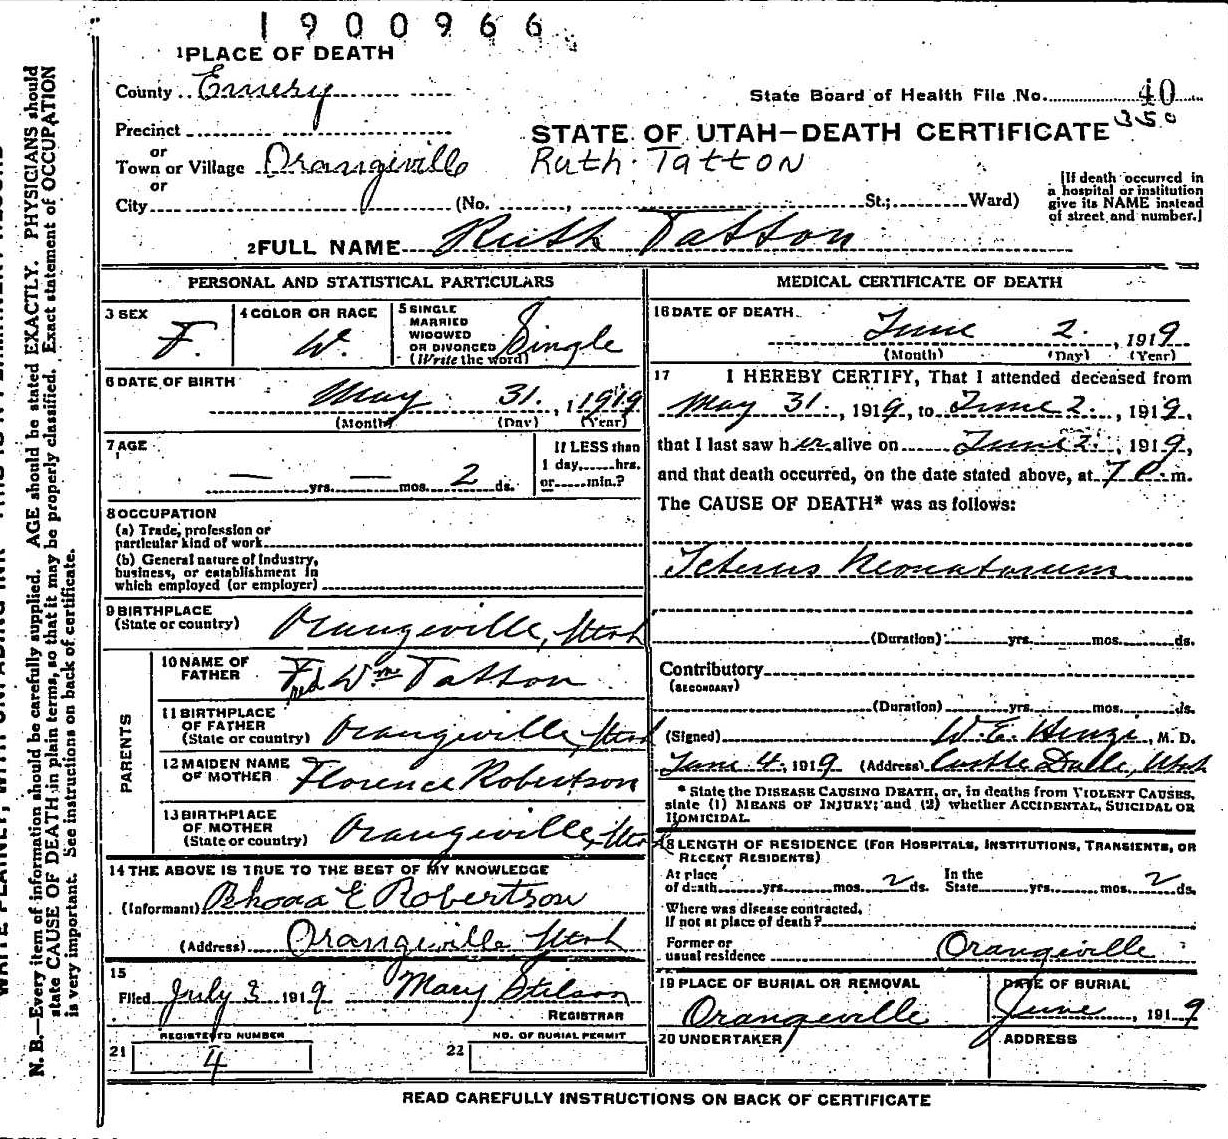 1900966
1 PLACE OF DEATH
County Emery
State Board of Health File No. 40
350
Precinct
STATE OF UTAH—DEATH CERTIFICATE
or
Town or Village Orangeville
Ruth Tatton
or
City (No. , St.; Ward)
[If death occurred in
a hospital or institution
give its NAME instead
of street and number.]
2 FULL NAME Ruth Tatton
PERSONAL AND STATISTICAL PARTICULARS
3 SEX
F.
4 COLOR OR RACE
W.
5 SINGLE
MARRIED
WIDOWED
OR DIVORCED
(Write the word)
Single
6 DATE OF BIRTH
May 31. , 1919
(Month) (Day) (Year)
7 AGE
— yrs. — mos. 2 ds.
If LESS than
1 day,......hrs.
or......min.?
8 OCCUPATION
(a) Trade, profession or
particular kind of work
(b) General nature of Industry,
business, or establishment in
which employed (or employer)
9 BIRTHPLACE
(State or country) Orangeville, Utah
PARENTS
10 NAME OF
FATHER Fred Wm Tatton
11 BIRTHPLACE
OF FATHER
(State or country) Orangeville, Utah
12 MAIDEN NAME
OF MOTHER Florence Robertson
13 BIRTHPLACE
OF MOTHER
(State or country) Orangeville, Utah
14 THE ABOVE IS TRUE TO THE BEST OF MY KNOWLEDGE
(Informant) Rhoda E Robertson
(Address) Orangeville Utah
15
Filed July 3 1919 Mary Stilson
REGISTRAR
REGISTERED NUMBER
21 4
NO. OF BURIAL PERMIT
22
MEDICAL CERTIFICATE OF DEATH
16 DATE OF DEATH
June 2. , 1919
(Month) (Day) (Year)
17 I HEREBY CERTIFY, That I attended deceased from
May 31. , 1919, to June 2. , 1919,
that I last saw her alive on June 2. , 1919,
and that death occurred, on the date stated above, at 7 P. m.
The CAUSE OF DEATH* was as follows:
Icterus Neonatorum
(Duration) yrs. mos. ds.
Contributory
(SECONDARY)
(Duration) yrs. mos. ds.
(Signed) W. E. , M. D.
June 4, 1919 (Address) Castle Dale, Utah
* State the DISEASE CAUSING DEATH, or, in deaths from VIOLENT CAUSES,
state (1) MEANS OF INJURY; and (2) whether ACCIDENTAL, SUICIDAL OR
HOMICIDAL.
18 LENGTH OF RESIDENCE (FOR HOSPITALS, INSTITUTIONS, TRANSIENTS, OR
RECENT RESIDENTS)
At place
of death yrs. mos. 2 ds.
In the
State yrs. mos. 2 ds.
Where was disease contracted,
If not at place of death?
Former or
usual residence Orangeville
19 PLACE OF BURIAL OR REMOVAL
Orangeville
DATE OF BURIAL
June , 1919
20 UNDERTAKER
ADDRESS
READ CAREFULLY INSTRUCTIONS ON BACK OF CERTIFICATE
N. B.—Every item of information should be carefully supplied. AGE should be stated EXACTLY. PHYSICIANS should
state CAUSE OF DEATH in plain terms, so that it may be properly classified. Exact statement of OCCUPATION
is very important. See instructions on back of certificate.